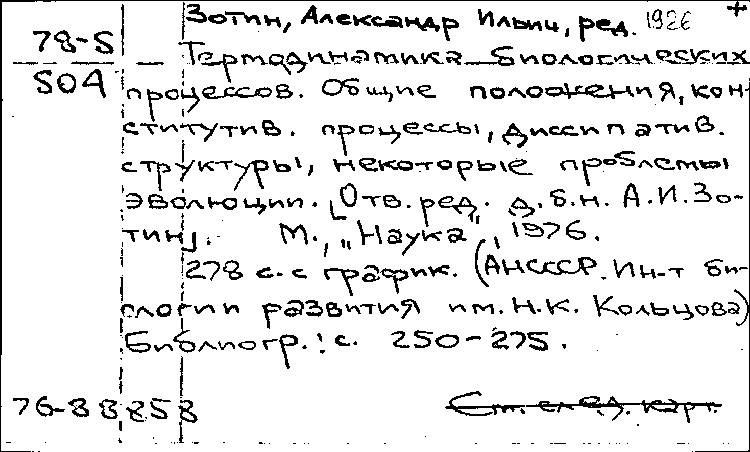 Зотин, Александр Ильич, ред. 1926 +
78-5
Термодинамика биологических
504
процессов. Общие положения, кон-
ститутив. процессы, диссипатив.
структуры, некоторые проблемы
эволюции. [Отв. ред. д.б.н. А.И.Зо-
тин]. М., „Наука", 1976.
278 с. с график. (АНСССР. Ин-т би-
ологии развития им. Н.К. Кольцова)
Библиогр.: с. 250-275.
76-88858
См. след. карт.